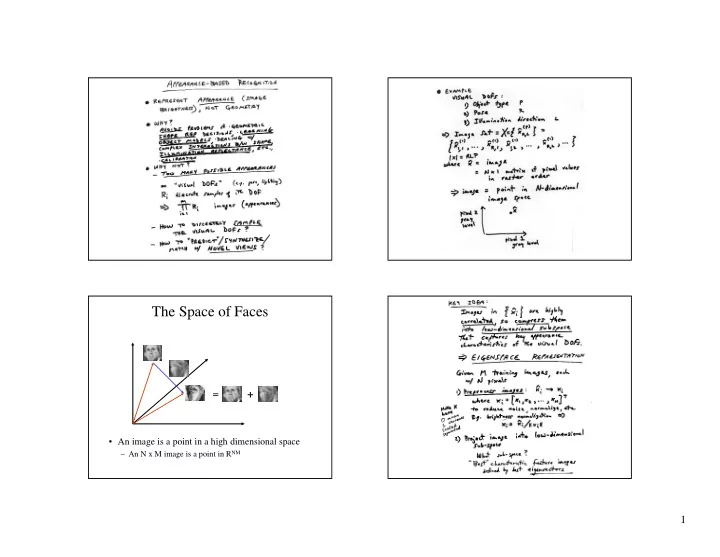 APPEARANCE-BASED RECOGNITION
• REPRESENT APPEARANCE (IMAGE
BRIGHTNESS), NOT GEOMETRY
• WHY?
AVOIDS PROBLEMS OF GEOMETRIC
SHAPE REP DECISIONS, LEARNING
OBJECT MODELS, DEALING W/
COMPLEX INTERACTIONS B/W SHAPE,
ILLUMINATION, REFLECTANCE, ETC.,
CALIBRATION
• WHY NOT?
– TOO MANY POSSIBLE APPEARANCES
m "visual DOFs" (e.g. pose, lighting)
Ri discrete samples of ith DOF
⇒ ∏ Ri images (appearances)
– HOW TO DISCRETELY SAMPLE
THE VISUAL DOFs?
– HOW TO "PREDICT"/SYNTHESIZE/
MATCH W/ NOVEL VIEWS?
• EXAMPLE
VISUAL DOFs:
1) Object type P
2) Pose R
3) Illumination direction L
⇒ Image Set
|X| = RLP
where x̂ = image
= N×1 matrix of pixel values
in raster order
⇒ image = point in N-dimensional
image space
Pixel 2
gray
level
x̂
Pixel 1
gray level
The Space of Faces
= +
• An image is a point in a high dimensional space
– An N x M image is a point in R^NM
KEY IDEA:
Images in {x̂i} are highly
correlated, so compress them
into low-dimensional subspace
that captures key appearance
characteristics of the visual DOFs.
⇒ EIGENSPACE REPRESENTATION
Given M training images, each
w/ N pixels
1) Preprocess images: x̂i → xi
where xi = [x1, x2, ..., xN]^T
to reduce noise, normalize, etc.
E.g. brightness normalization ⇒
2) Project image into low-dimensional
sub-space
What sub-space?
"Best" characteristic feature images
defined by best eigenvectors
1